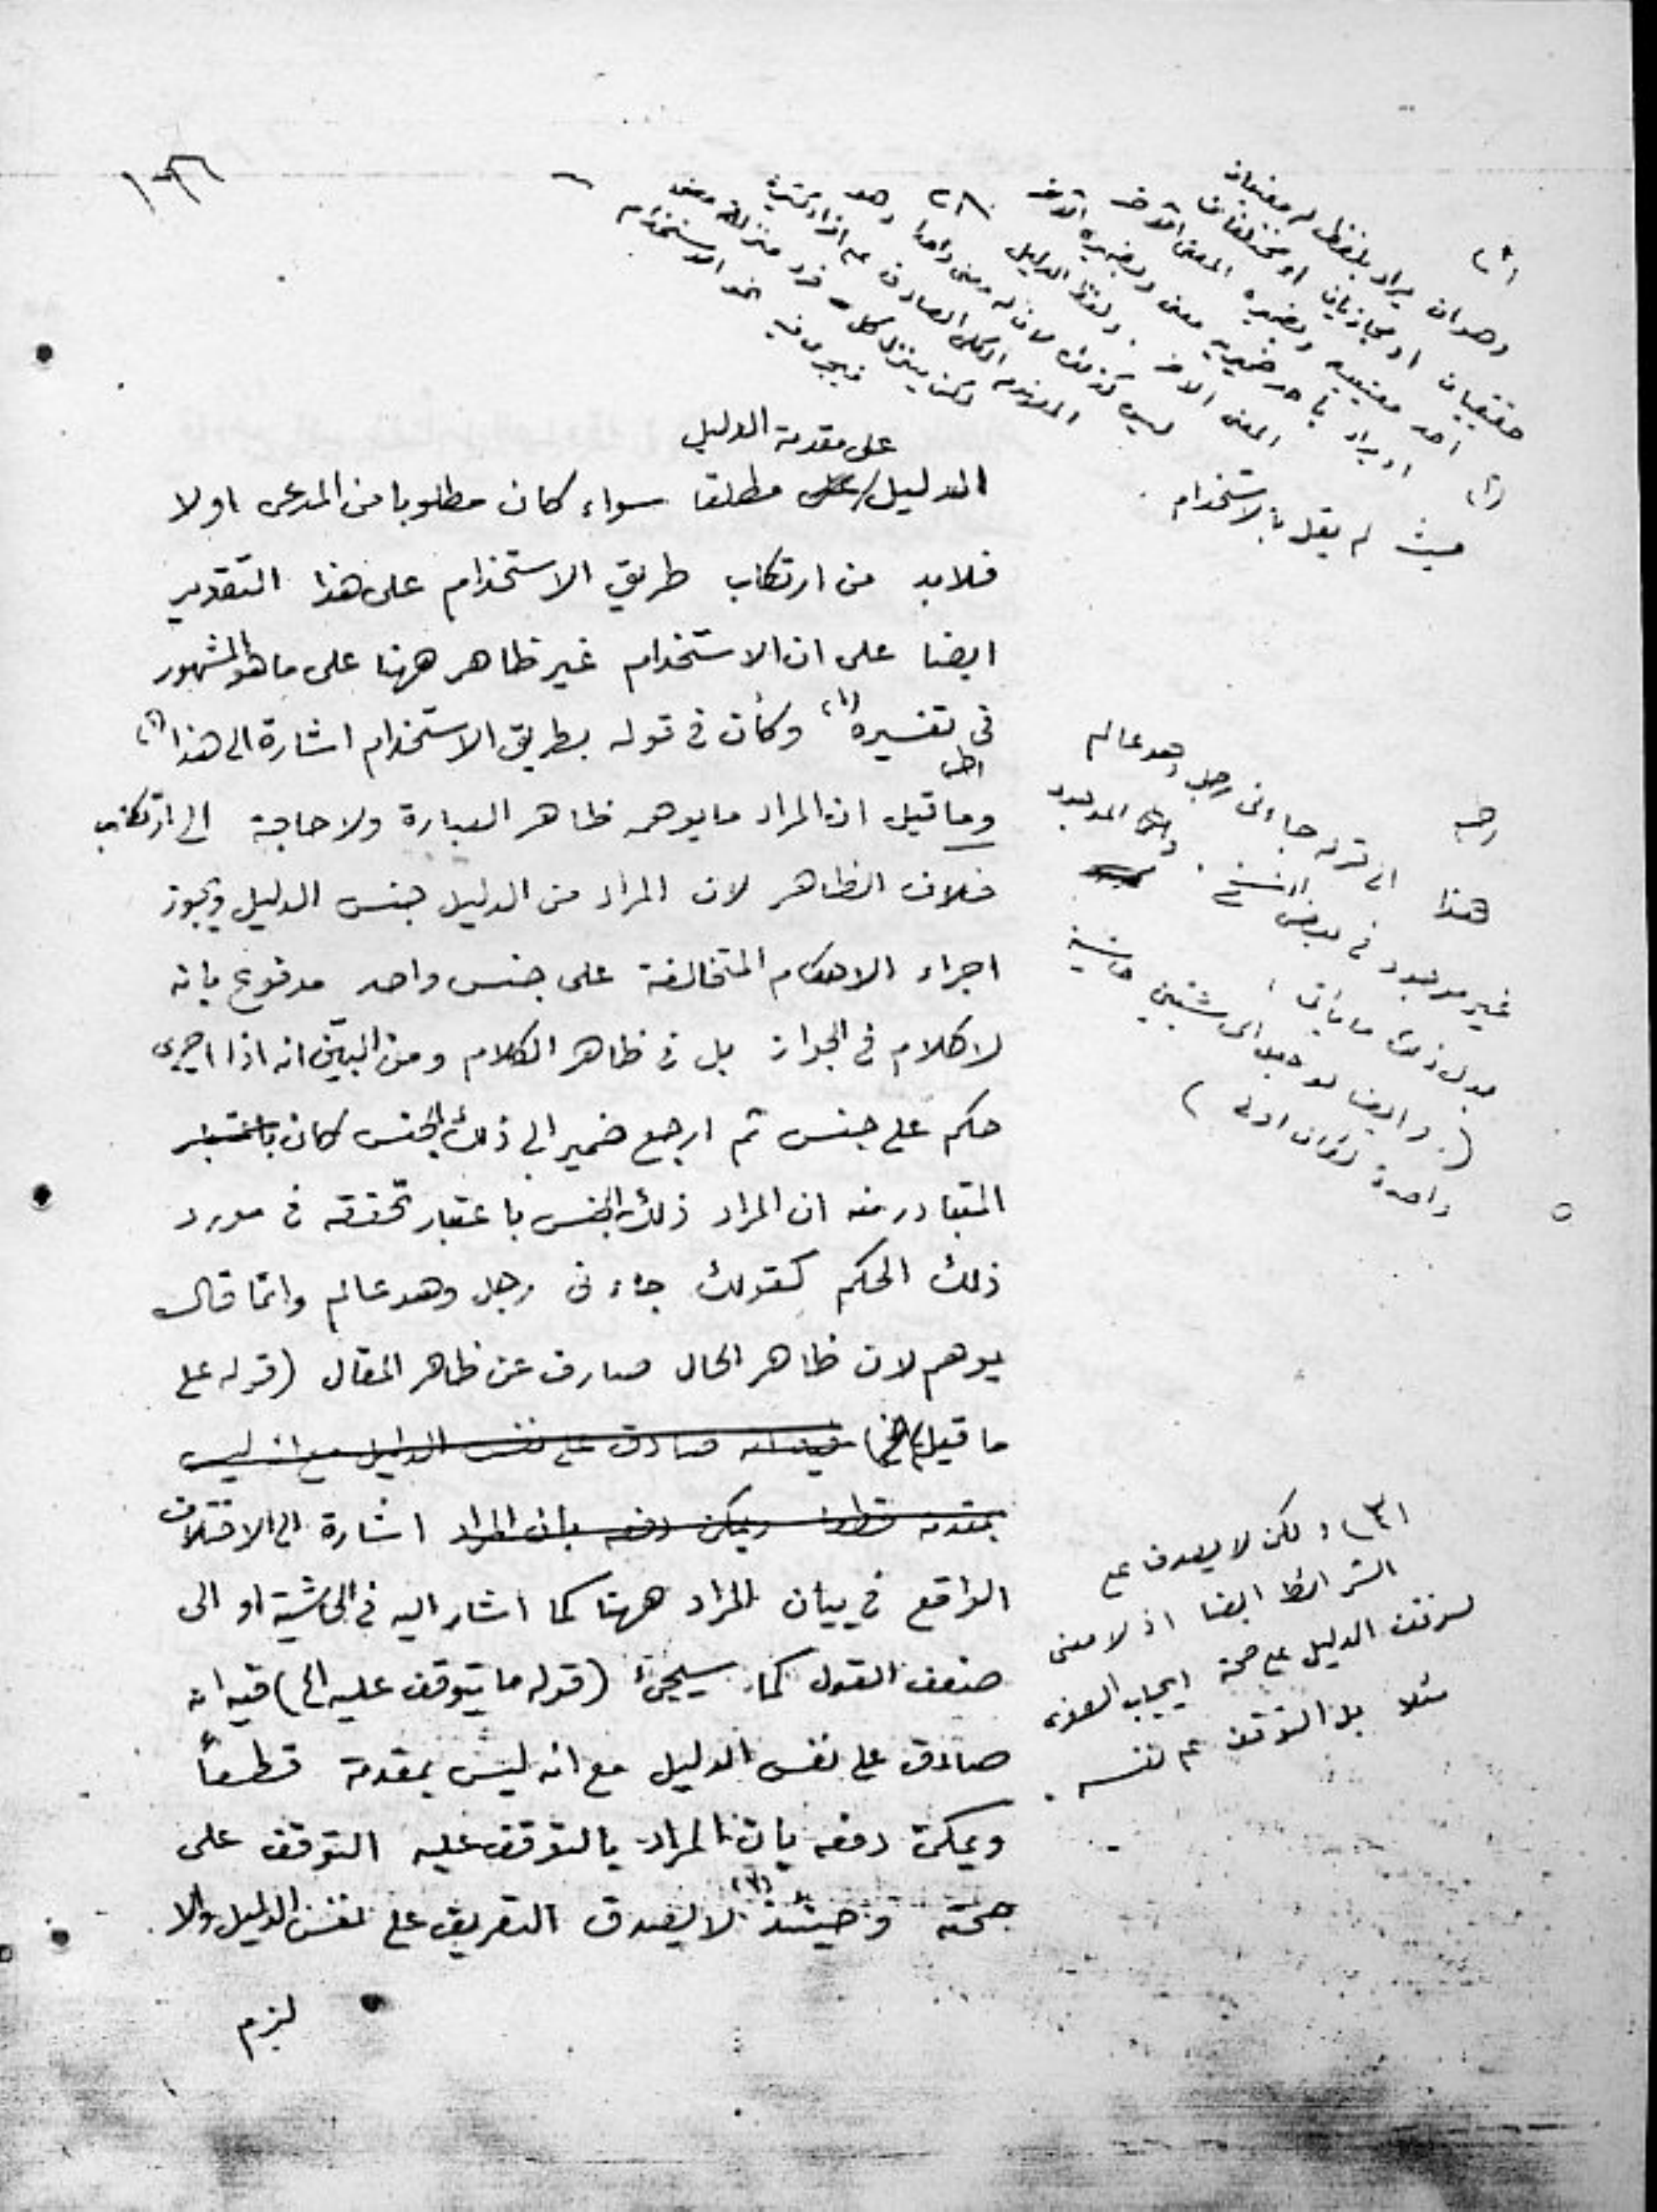 (١)
وهو ان يراد بلفظ له معنيان
حقيقيان او مجازيان او مختلفان
احد معنييه وبضميره المعنى الآخر
او يراد باحد ضميريه معنى وبضميره الآخر
المعنى الآخر . ولفظ الدليل
ليس كذلك
لكن ينزل كل فرد منزلة معنى
فيجرى فيه الاستخدام
(٢)
حيث لم يقل بالاستخدام .
على مقدمة الدليل
الدليل / مطلقا سواء كان مطلوبا من المدعى اولا
فلابد من ارتكاب طريق الاستخدام على هذا التقدير
ايضا على ان الاستخدام غير ظاهر ههنا على ما هو المشهور
فى تفسيره (١) وكأن فى قوله بطريق الاستخدام اشارة الى هذا (٢)
وما قيل ان المراد ما يوهمه ظاهر العبارة ولا حاجة الى ارتكاب
خلاف الظاهر لان المراد من الدليل جنس الدليل ويجوز
اجراء الاحكام المتخالفة على جنس واحد مدفوع بانه
لا كلام فى الجواز بل فى ظاهر الكلام ومن البين انه اذا اجرى
حكم على جنس ثم ارجع ضمير الى ذلك الجنس كان باعتبار
المتبادر منه ان المراد ذلك الجنس باعتبار تحققه فى مورد
ذلك الحكم كقولك جاءنى رجل وهو عالم وانما قال
يوهم لان ظاهر الحال صارف عن ظاهر المقال (قوله على
ما قيل الخ) فيه انه صادق على نفس الدليل مع انه ليس
بمقدمة قطعا ويمكن دفعه بان المراد اشارة الى الاختلاف
الواقع فى بيان المراد ههنا كما اشار اليه فى الحاشية او الى
ضعف القول كما سيجئ (قوله ما يتوقف عليه الخ) فيه انه
صادق على نفس الدليل مع انه ليس بمقدمة قطعاً
ويمكن دفعه بان المراد بالتوقف عليه التوقف على
صحته وحينئذ (٣) لا يصدق التعريف على نفس الدليل والا
لزم
هذا الى قوله جاءنى رجل وهو عالم
غير موجود فى بعض النسخ .
بدل ذلك ما يأتى :
( وايضا لو جعل الحاشيتين حاشية
واحدة لكان اولى )
(٣) ولكن لا يصدق على
الشرائط ايضا اذ لا معنى
لتوقف الدليل على صحة ايجاب الصغرى
مثلا بل التوقف على نفسه .